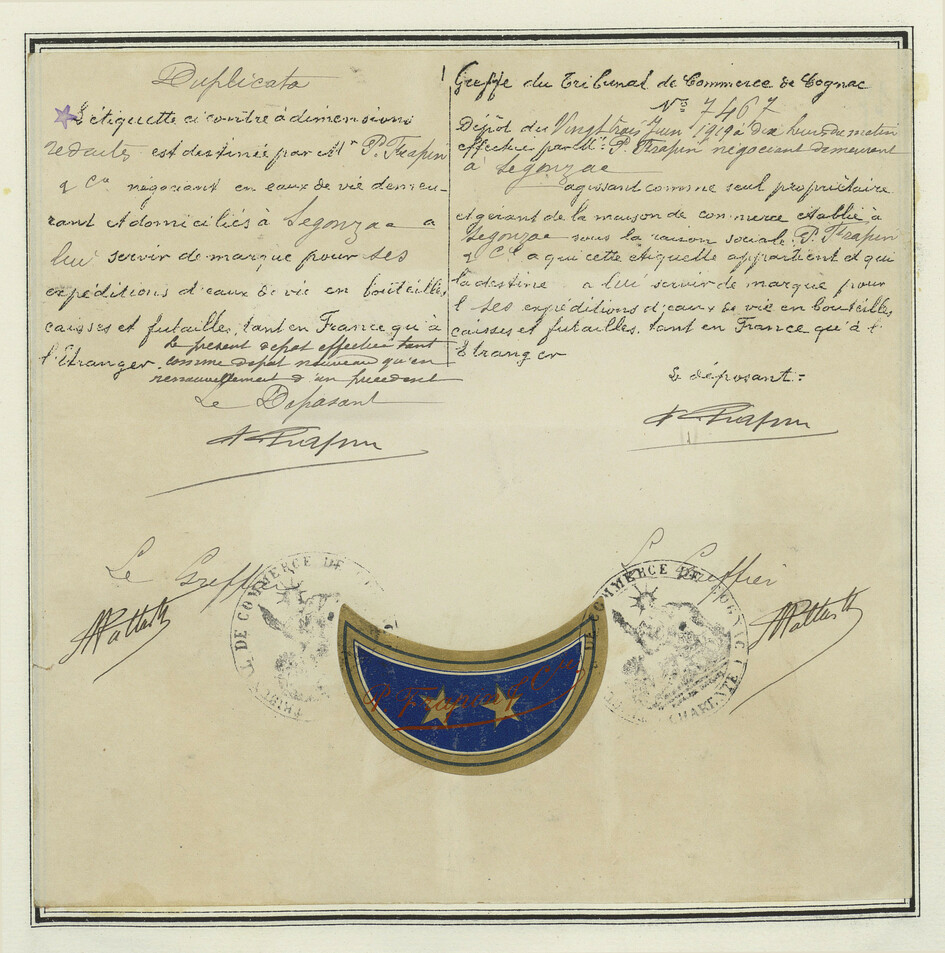 Duplicata
L'étiquette ci contre à dimensions
réduites est destinée par Mr P. Frapin
& Cie négociant en eaux de vie demeu-
rant et domiciliés à Segonzac a
lui servir de marque pour ses
expéditions d'eaux de vie en bouteilles,
caisses et futailles, tant en France qu'à
l'Etranger. Le présent dépot effectué tant
comme dépot nouveau qu'en
renouvellement d'un précédent
Le Déposant
P. Frapin
Greffe du Tribunal de Commerce de Cognac
No 7467
Dépôt du Vingt trois Juin 1919 à dix heures du matin
effectué par M. P. Frapin négociant demeurant
à Segonzac
agissant comme seul propriétaire
et gérant de la maison de commerce établie à
Segonzac sous la raison sociale P. Frapin
& Cie a qui cette étiquette appartient et qui
la destine a lui servir de marque pour
ses expéditions d'eaux de vie en bouteilles
caisses et futailles, tant en France qu'à l'
Etranger
Le déposant:
P. Frapin
Le Greffier
Le Greffier
TRIBUNAL DE COMMERCE DE
P. Frapin & Cie
DE COMMERCE DE COGNAC
CHARENTE